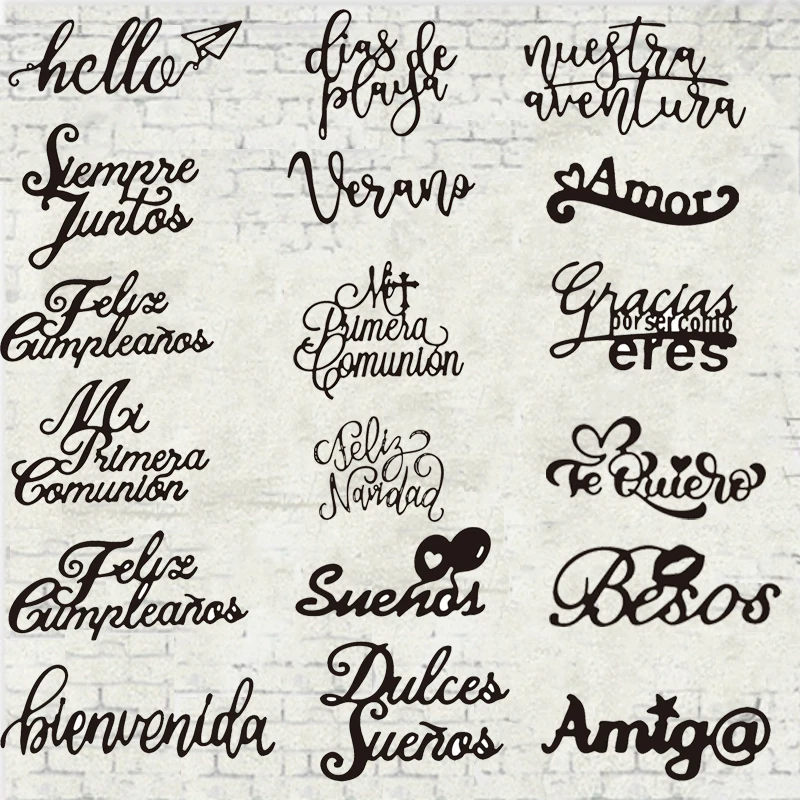 hello
días de
playa
nuestra
aventura
Siempre
Juntos
Verano
Amor
Feliz
Cumpleaños
Mi
Primera
Comunión
Gracias
por ser como
eres
Mi
Primera
Comunión
Feliz
Navidad
Te Quiero
Feliz
Cumpleaños
Sueños
Besos
bienvenida
Dulces
Sueños
Amig@